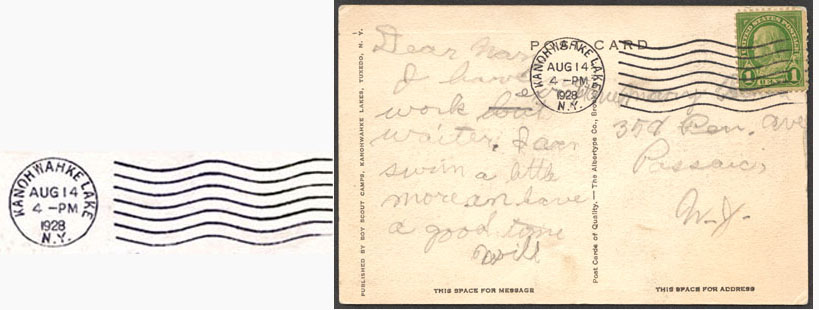 KANOHWAHKE LAKE
AUG 14
4 -PM
1928
N.Y.
POST CARD
KANOHWAHKE LAKE
AUG 14
4 -PM
1928
N.Y.
UNITED STATES POSTAGE
1 1
PUBLISHED BY BOY SCOUT CAMPS, KANOHWAHKE LAKES, TUXEDO, N. Y.
Dear
I have
work
writer. I can
swim a little
more an have
a good time
Will
Post Cards of Quality. — The Albertype Co.,
Mary
358 Pen. ave
Passaic,
N.J.
THIS SPACE FOR MESSAGE
THIS SPACE FOR ADDRESS